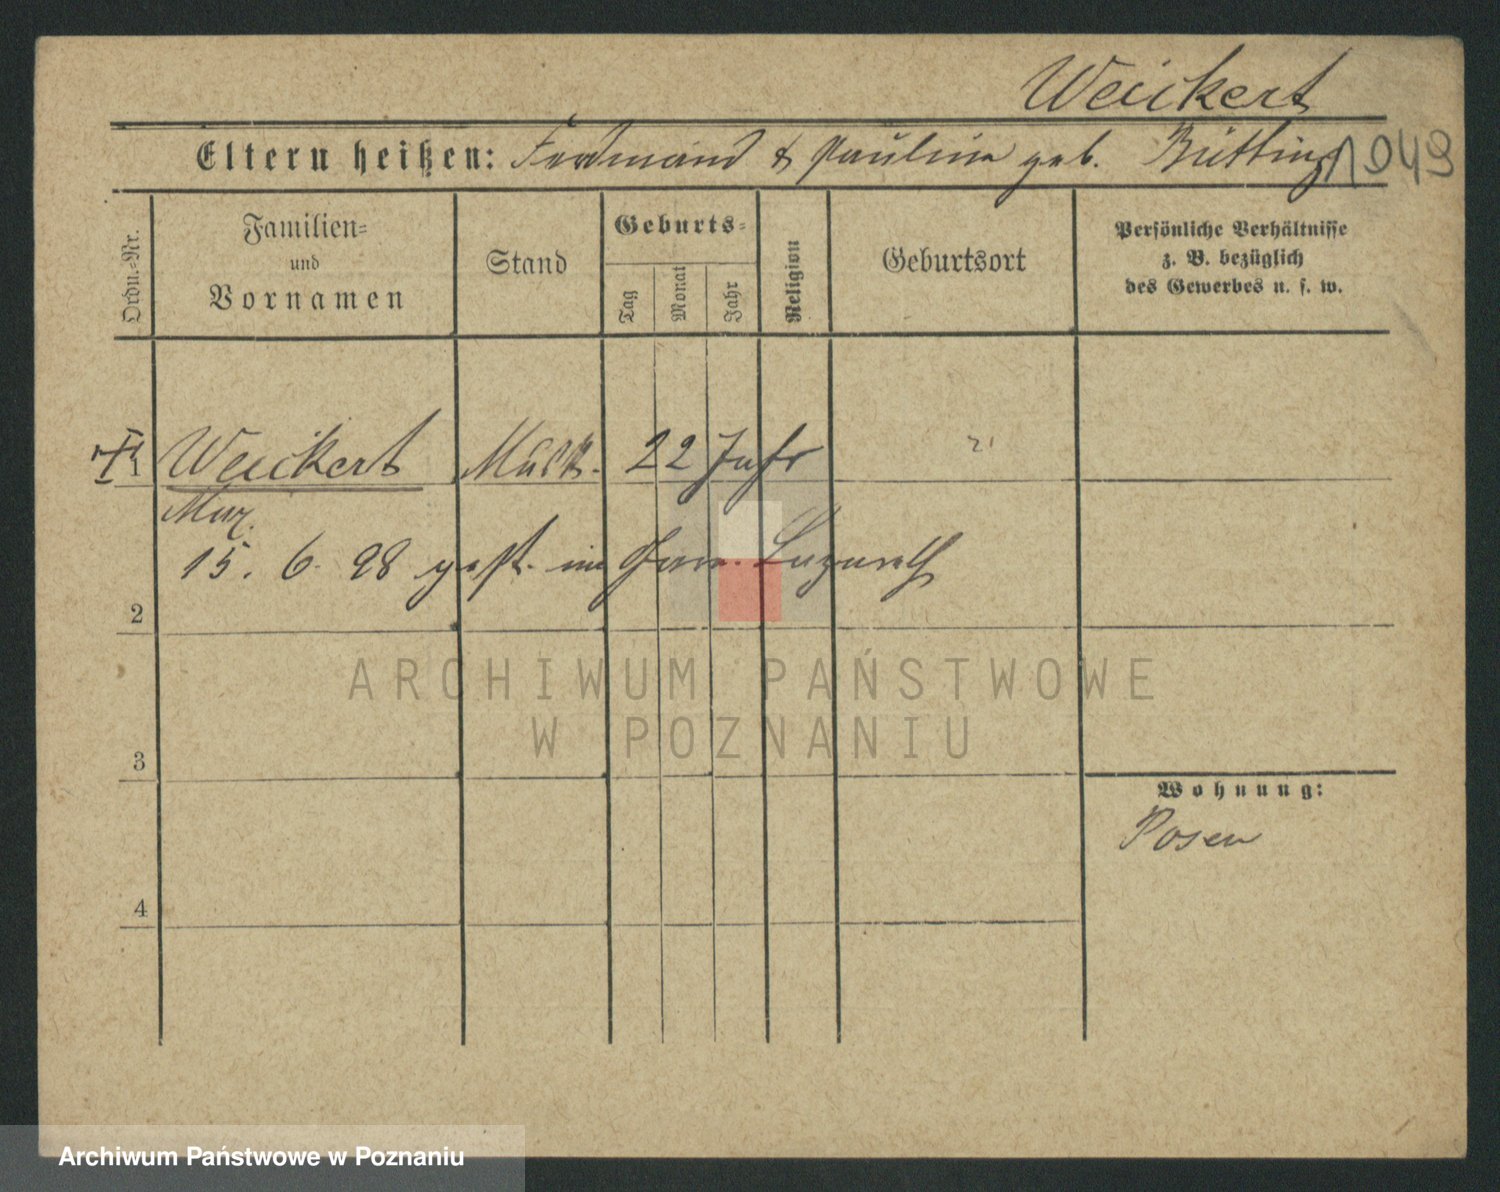 Weickert
Eltern heißen: Ferdinand & Pauline geb. Bütting
1049
Ordn.-Nr.
Familien=
und
Vornamen
Stand
Geburts=
Tag
Monat
Jahr
Religion
Geburtsort
Persönliche Verhältnisse
z. B. bezüglich
des Gewerbes u. s. w.
Weickert Musk. 22 Jahr ?
Max
15. 6. 98 gest. im Garn. Lazareth
2
3
4
Wohnung:
Posen
ARCHIWUM PAŃSTWOWE
W POZNANIU
Archiwum Państwowe w Poznaniu